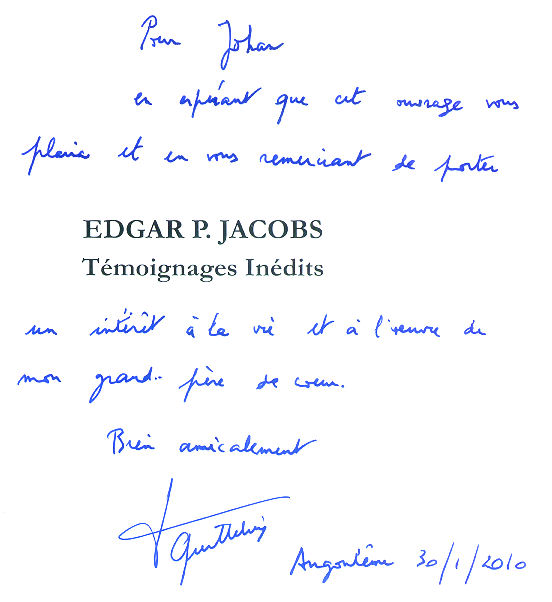 Pour Johan
en espérant que cet ouvrage vous
plaira et en vous remerciant de porter
EDGAR P. JACOBS
Témoignages Inédits
un intérêt à la vie et à l'œuvre de
mon grand-père de cœur.
Bien amicalement
Angoulême 30/1/2010